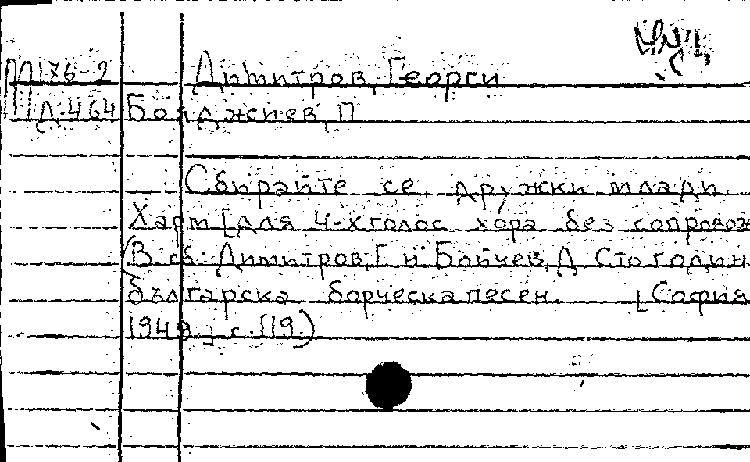 П176-2 Димитров, Георги
Д-464 Бояджиев, П
Сбирайте се дружки млади.
Харм [для 4-х голос хора без сопровож
(В сб: Димитров, Г и Бойчев, Д Сто годин
българска борческа песен. [София
1949] с. 119.)